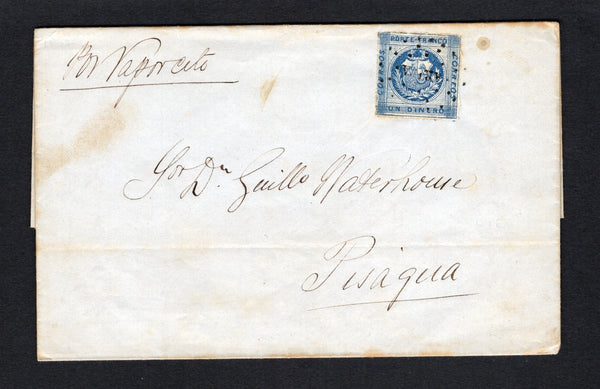 Por Vaporcito
PORTE FRANCO
CORREOS
CORREOS
UN DINERO
Sor Dn Guillo Waterhouse
Pisagua